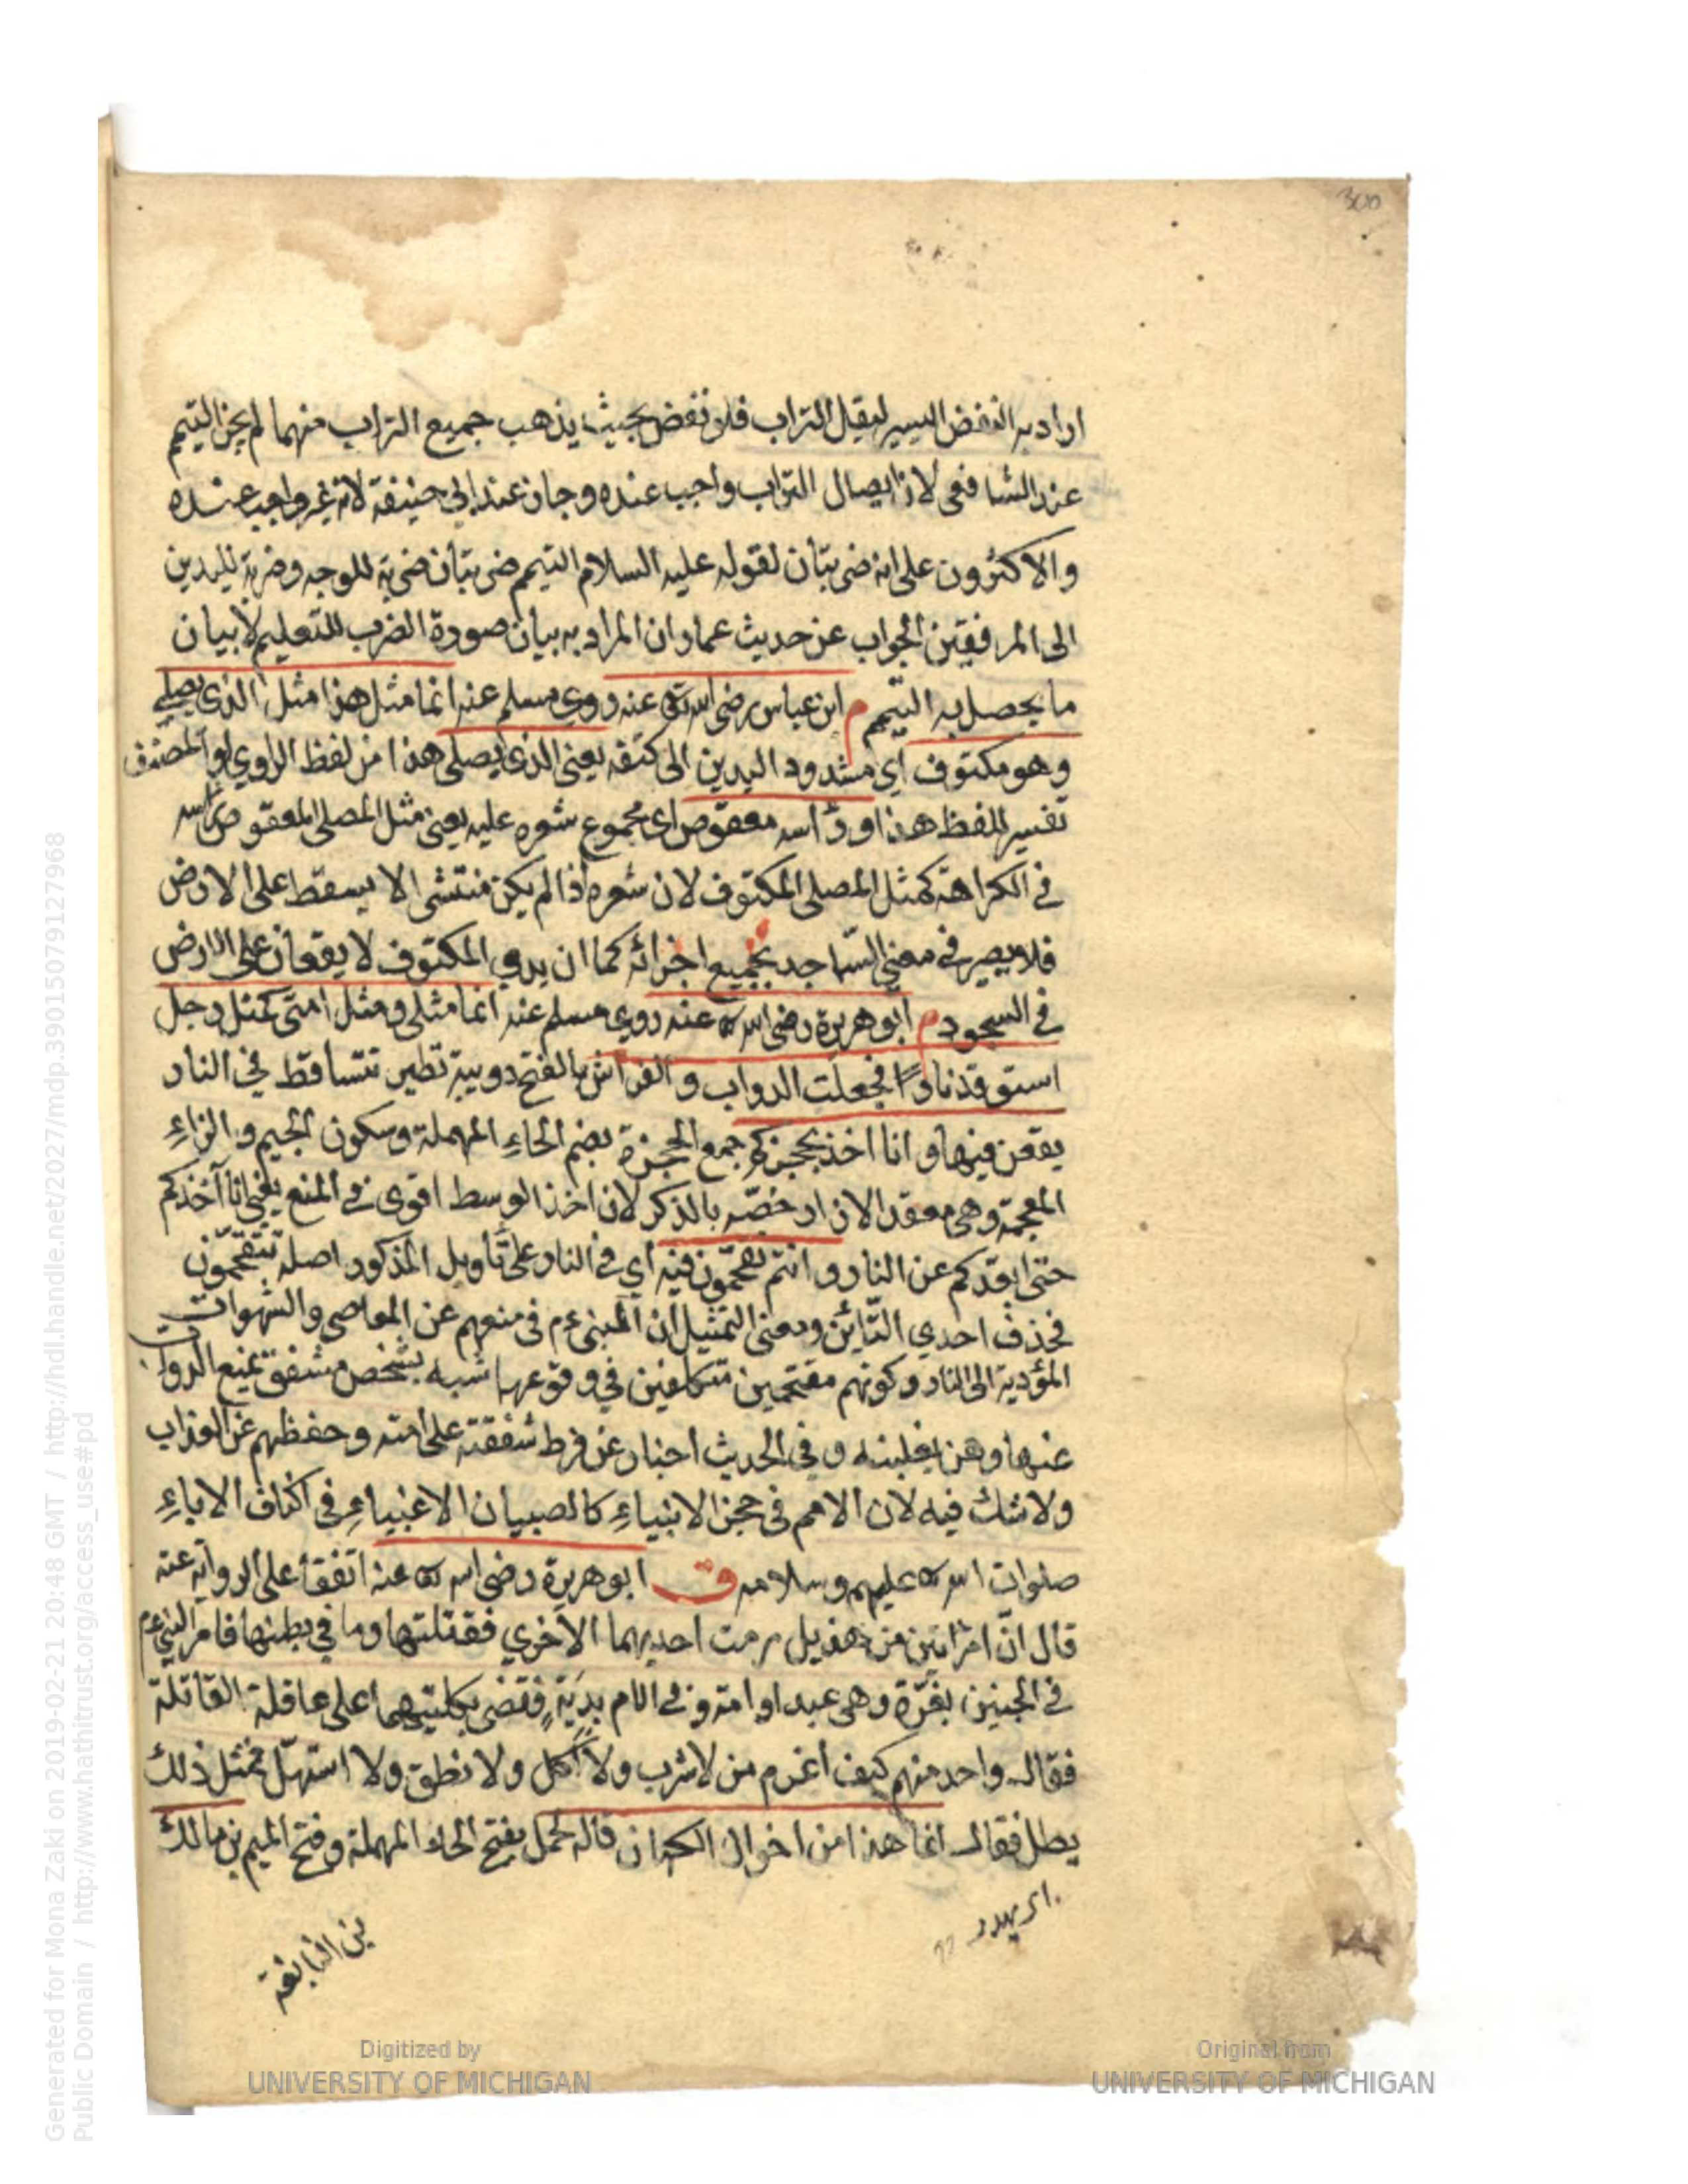 300
اراد به النفض اليسير ليقل التراب فلو نفض بحيث يذهب جميع التراب منهما لم يجز التيمم
عند الشافعي لان ايصال التراب واجب عنده وجاز عند ابي حنيفة لانه غير واجب عنده
والاكثرون على انه ضربتان لقوله عليه السلام التيمم ضربتان ضربة للوجه وضربة لليدين
الى المرفقين الجواب عن حديث عمار ان المراد به بيان صورة الضرب للتعليم لا بيان
ما يحصل به التيمم م ابن عباس رضي الله تع عنه روي مسلم عنه انما مثل هذا مثل الذي يصلي
وهو مكتوف اي مشدود اليدين الى كتفه يعني الذي يصلي هذا من لفظ الراوي او المصنف
تفسير للفظ هذا ورأسه معقوص اى مجموع شعره عليه يعني مثل المصلي المعقوص رأسه
في الكراهة كمثل المصلى المكتوف لان شعره اذا لم يكن منتشرا لا يسقط على الارض
فلا يصير في معنى الساجد بجميع اجزائه كما ان يدي المكتوف لا يقعان على الارض
في السجود م ابو هريرة رضى الله تع عنه روي مسلم عنه انما مثلي ومثل امتى كمثل رجل
استوقد نارًا فجعلت الدواب والفراش بالفتح دويبة تطير تتساقط في النار
يقعن فيها وانا اخذ بحجزكم جمع الحجزة بضم الحاءِ المهملة وسكون الجيم والزاءِ
المعجمة وهي معقد الازار خصّه بالذكر لان اخذ الوسط اقوى في المنع يعني انا آخذكم
حتى ابعّدكم عن النار وانتم تقحّمون فيه اي في النار على تأويل المذكور اصله تتقحّمون
فحذف احدي التائين ومعنى التمثيل ان النبي ءم في منعهم عن المعاصي والشهوات
المؤدية الى النار وكونهم مقتحمين متكلفين في وقوعها شبه بشخص مشفق يمنع الدواب
عنها وهن يغلبنه وفي الحديث اخبار عن فرط شفقته على امته وحفظهم عن العذاب
ولا شك فيه لان الامم في حجز الانبياءِ كالصبيان الاغبياءِ في اكناف الاباءِ
صلوات الله تع عليهم وسلامه ق ابو هريرة رضى الله تع عنه اتفقا على الرواية عنه
قال انّ امرأتين من هذيل رمت احديهما الاخري فقتلتها وما في بطنها فامر النبي ءم
في الجنين بغرّة وهى عبد او امة وفي الام بديةٍ فقضى بكلتيهما على عاقلة القاتلة
فقال واحد منهم كيف أغرم من لا شرب ولا اكل ولا نطق ولا استهلّ فمثل ذلك
يطل فقال انما هذا من اخوان الكهان قاله لحمل بفتح الحاء المهملة وفتح الميم بن مالك
اى يهدر
بن النابغة
Generated for Mona Zaki on 2019-02-21 20:48 GMT / http://hdl.handle.net/2027/mdp.39015079127968
Public Domain / http://www.hathitrust.org/access_use#pd
Digitized by
UNIVERSITY OF MICHIGAN
Original from
UNIVERSITY OF MICHIGAN